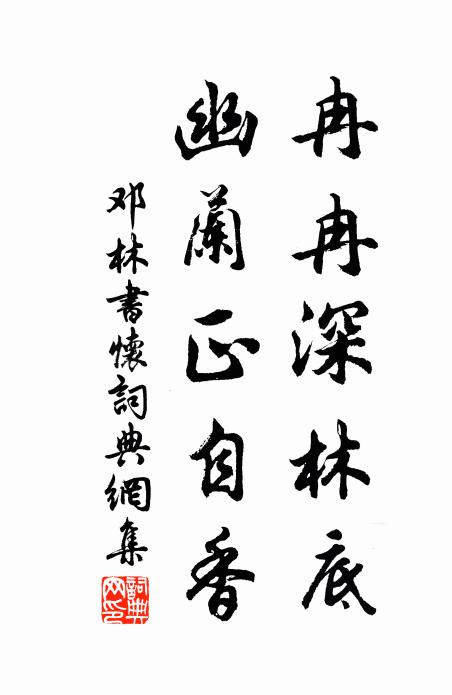 冉冉深林底
幽蘭正自香
邓林書懷詞典網集
詞典网印